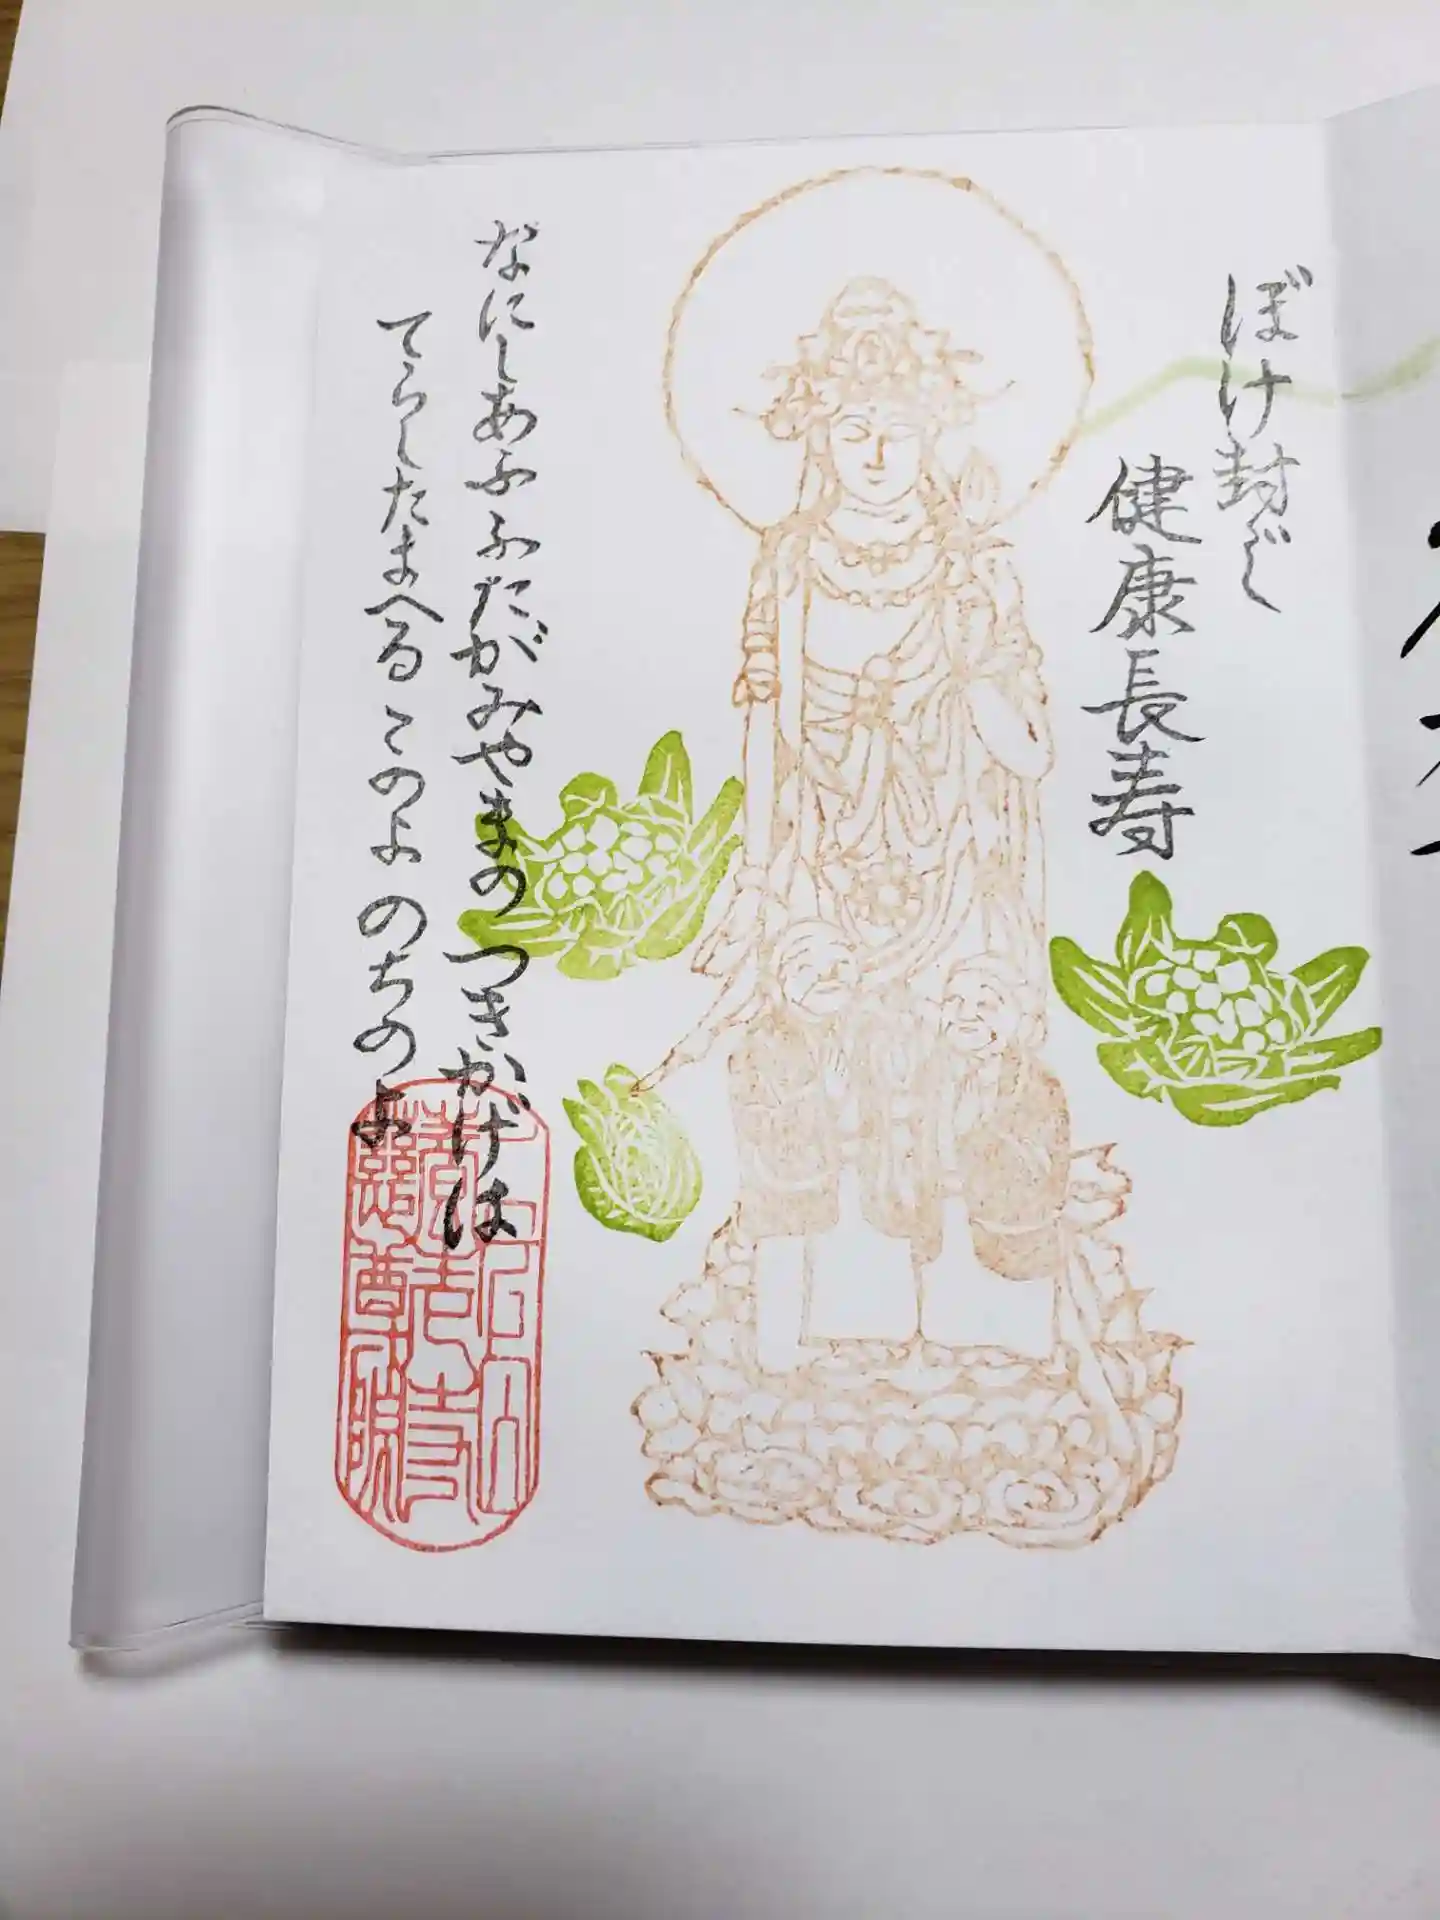 ぼけ封じ
健康長寿
なにしあふ ふたがみやまの つきかげは
てらしたまへる このよ のちのよ